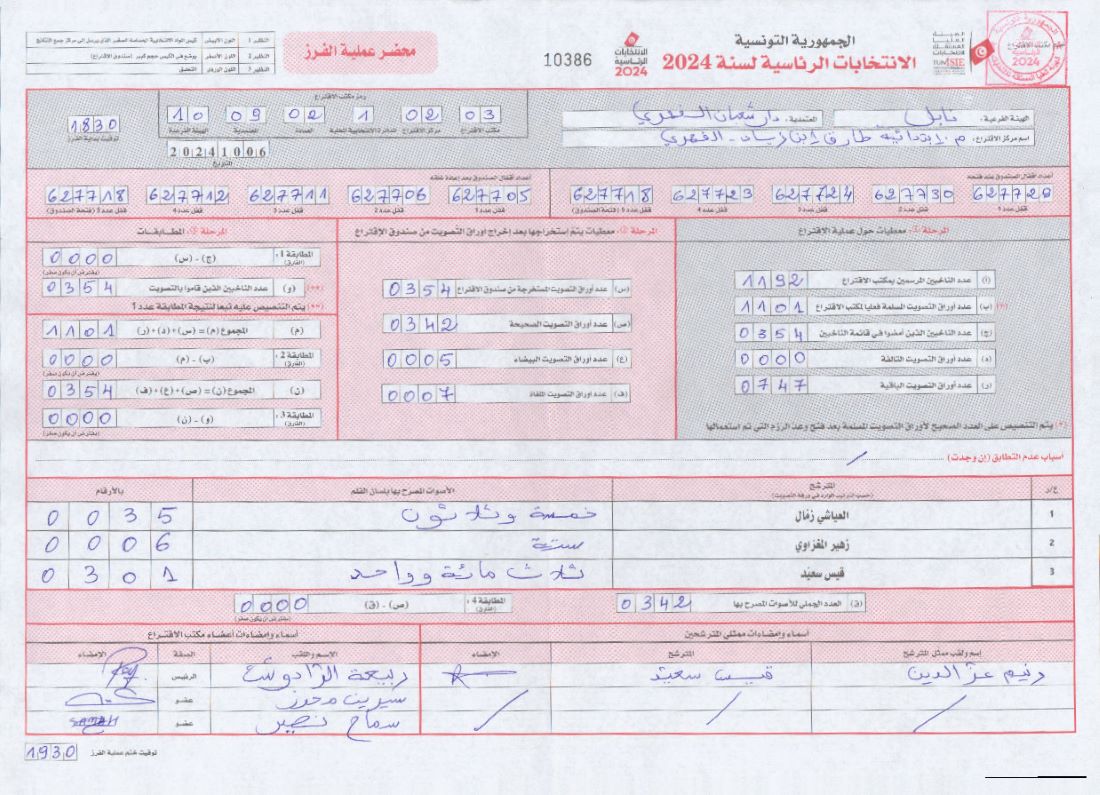 الجمهورية التونسية
الانتخابات الرئاسية لسنة 2024
الانتخابات الرئاسية 2024
10386
محضر عملية الفرز
النظير 1 اللون الأبيض
النظير 2 اللون الأصفر يوضع في الكيس حجم كبير (صندوق الاقتراع)
النظير 3 اللون الوردي التعليق
الهيئة الفرعية: نابل المعتمدية: دار شعبان الفهري
اسم مركز الاقتراع: م. ابتدائية طارق ابن زياد - الفهري
رمز مكتب الاقتراع
03 02 1 02 09 10
مكتب الاقتراع مركز الاقتراع الدائرة الانتخابية المحلية العمادة المعتمدية الهيئة الفرعية
20241006
التاريخ
1830
توقيت بداية الفرز
أعداد أقفال الصندوق عند فتحه
627729 627730 627724 627723 627718
قفل عدد 1 قفل عدد 2 قفل عدد 3 قفل عدد 4 قفل عدد 5 (فتحة الصندوق)
أعداد أقفال الصندوق بعد إعادة غلقه
627705 627706 627711 627712 627718
قفل عدد 1 قفل عدد 2 قفل عدد 3 قفل عدد 4 قفل عدد 5 (فتحة الصندوق)
المرحلة 1: معطيات حول عملية الاقتراع
(أ) عدد الناخبين المرسمين بمكتب الاقتراع 1192
(*) (ب) عدد أوراق التصويت المسلمة فعليا لمكتب الاقتراع 1101
(ج) عدد الناخبين الذين أمضوا في قائمة الناخبين 0354
(د) عدد أوراق التصويت التالفة 0000
(ر) عدد أوراق التصويت الباقية 0747
(*) يتم التنصيص على العدد الصحيح لأوراق التصويت المسلمة بعد فتح وعد الرزم التي تم استعمالها
المرحلة 2: معطيات يتم إستخراجها بعد إخراج أوراق التصويت من صندوق الإقتراع
(س) عدد أوراق التصويت المستخرجة من صندوق الاقتراع 0354
(ص) عدد أوراق التصويت الصحيحة 0342
(ع) عدد أوراق التصويت البيضاء 0005
(ف) عدد أوراق التصويت الملغاة 0007
المرحلة 3: المطابقات
المطابقة 1: (الفارق) (ج) - (س) 0000
(يفترض أن يكون صفر)
(**) (و) عدد الناخبين الذين قاموا بالتصويت 0354
(**) يتم التنصيص عليه تبعا لنتيجة المطابقة عدد 1
(م) المجموع (م) = (س) + (د) + (ر) 1101
المطابقة 2: (الفارق) (ب) - (م) 0000
(يفترض أن يكون صفر)
(ن) المجموع (ن) = (ص) + (ع) + (ف) 0354
المطابقة 3: (الفارق) (و) - (ن) 0000
(يفترض أن يكون صفر)
أسباب عدم التطابق (إن وجدت) /
ع/د المترشح الأصوات المصرح بها بلسان القلم بالأرقام
(حسب الترتيب الوارد في ورقة التصويت)
1 العياشي زمّال خمسة وثلاثون 0035
2 زهير المغزاوي ستة 0006
3 قيس سعيّد ثلاث مائة وواحد 0301
(ق) العدد الجملي للأصوات المصرح بها 0342
المطابقة 4: (الفارق) (ص) - (ق) 0000
(يفترض أن يكون صفر)
أسماء وإمضاءات ممثلي المترشحين
إسم ولقب ممثل المترشح المترشح الإمضاء
عز الدين قيس سعيد
أسماء وإمضاءات أعضاء مكتب الاقتراع
الإسم واللقب الصفة الإمضاء
ربيعة الرئيس
سيرين محرز عضو
سماح نصير عضو
توقيت ختم عملية الفرز 1930